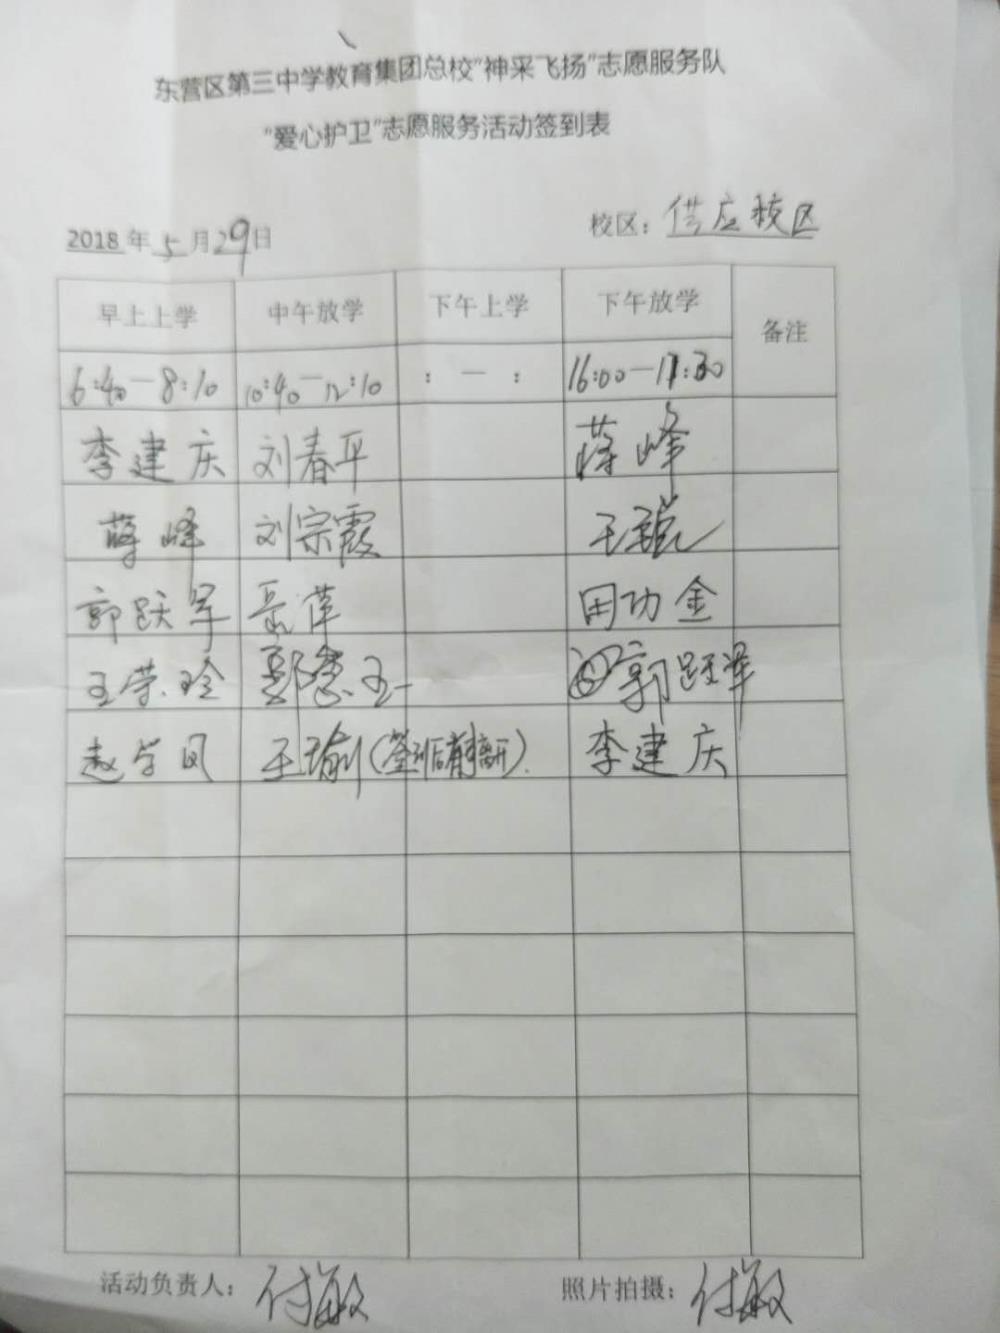 东营区第三中学教育集团总校“神采飞扬”志愿服务队
“爱心护卫”志愿服务活动签到表
2018年5月29日 校区：供应校区
早上上学 中午放学 下午上学 下午放学 备注
6:40－8:10 10:40－12:10 ：－： 16:00－17:30
李建庆 刘春平 蒋峰
蒋峰 刘宗霞 王
郭跃军 岳萍 田功金
王荣玲 郭跃军
赵学凤 王瑜（签到后有事离开）. 李建庆
活动负责人：付敏 照片拍摄：付敏